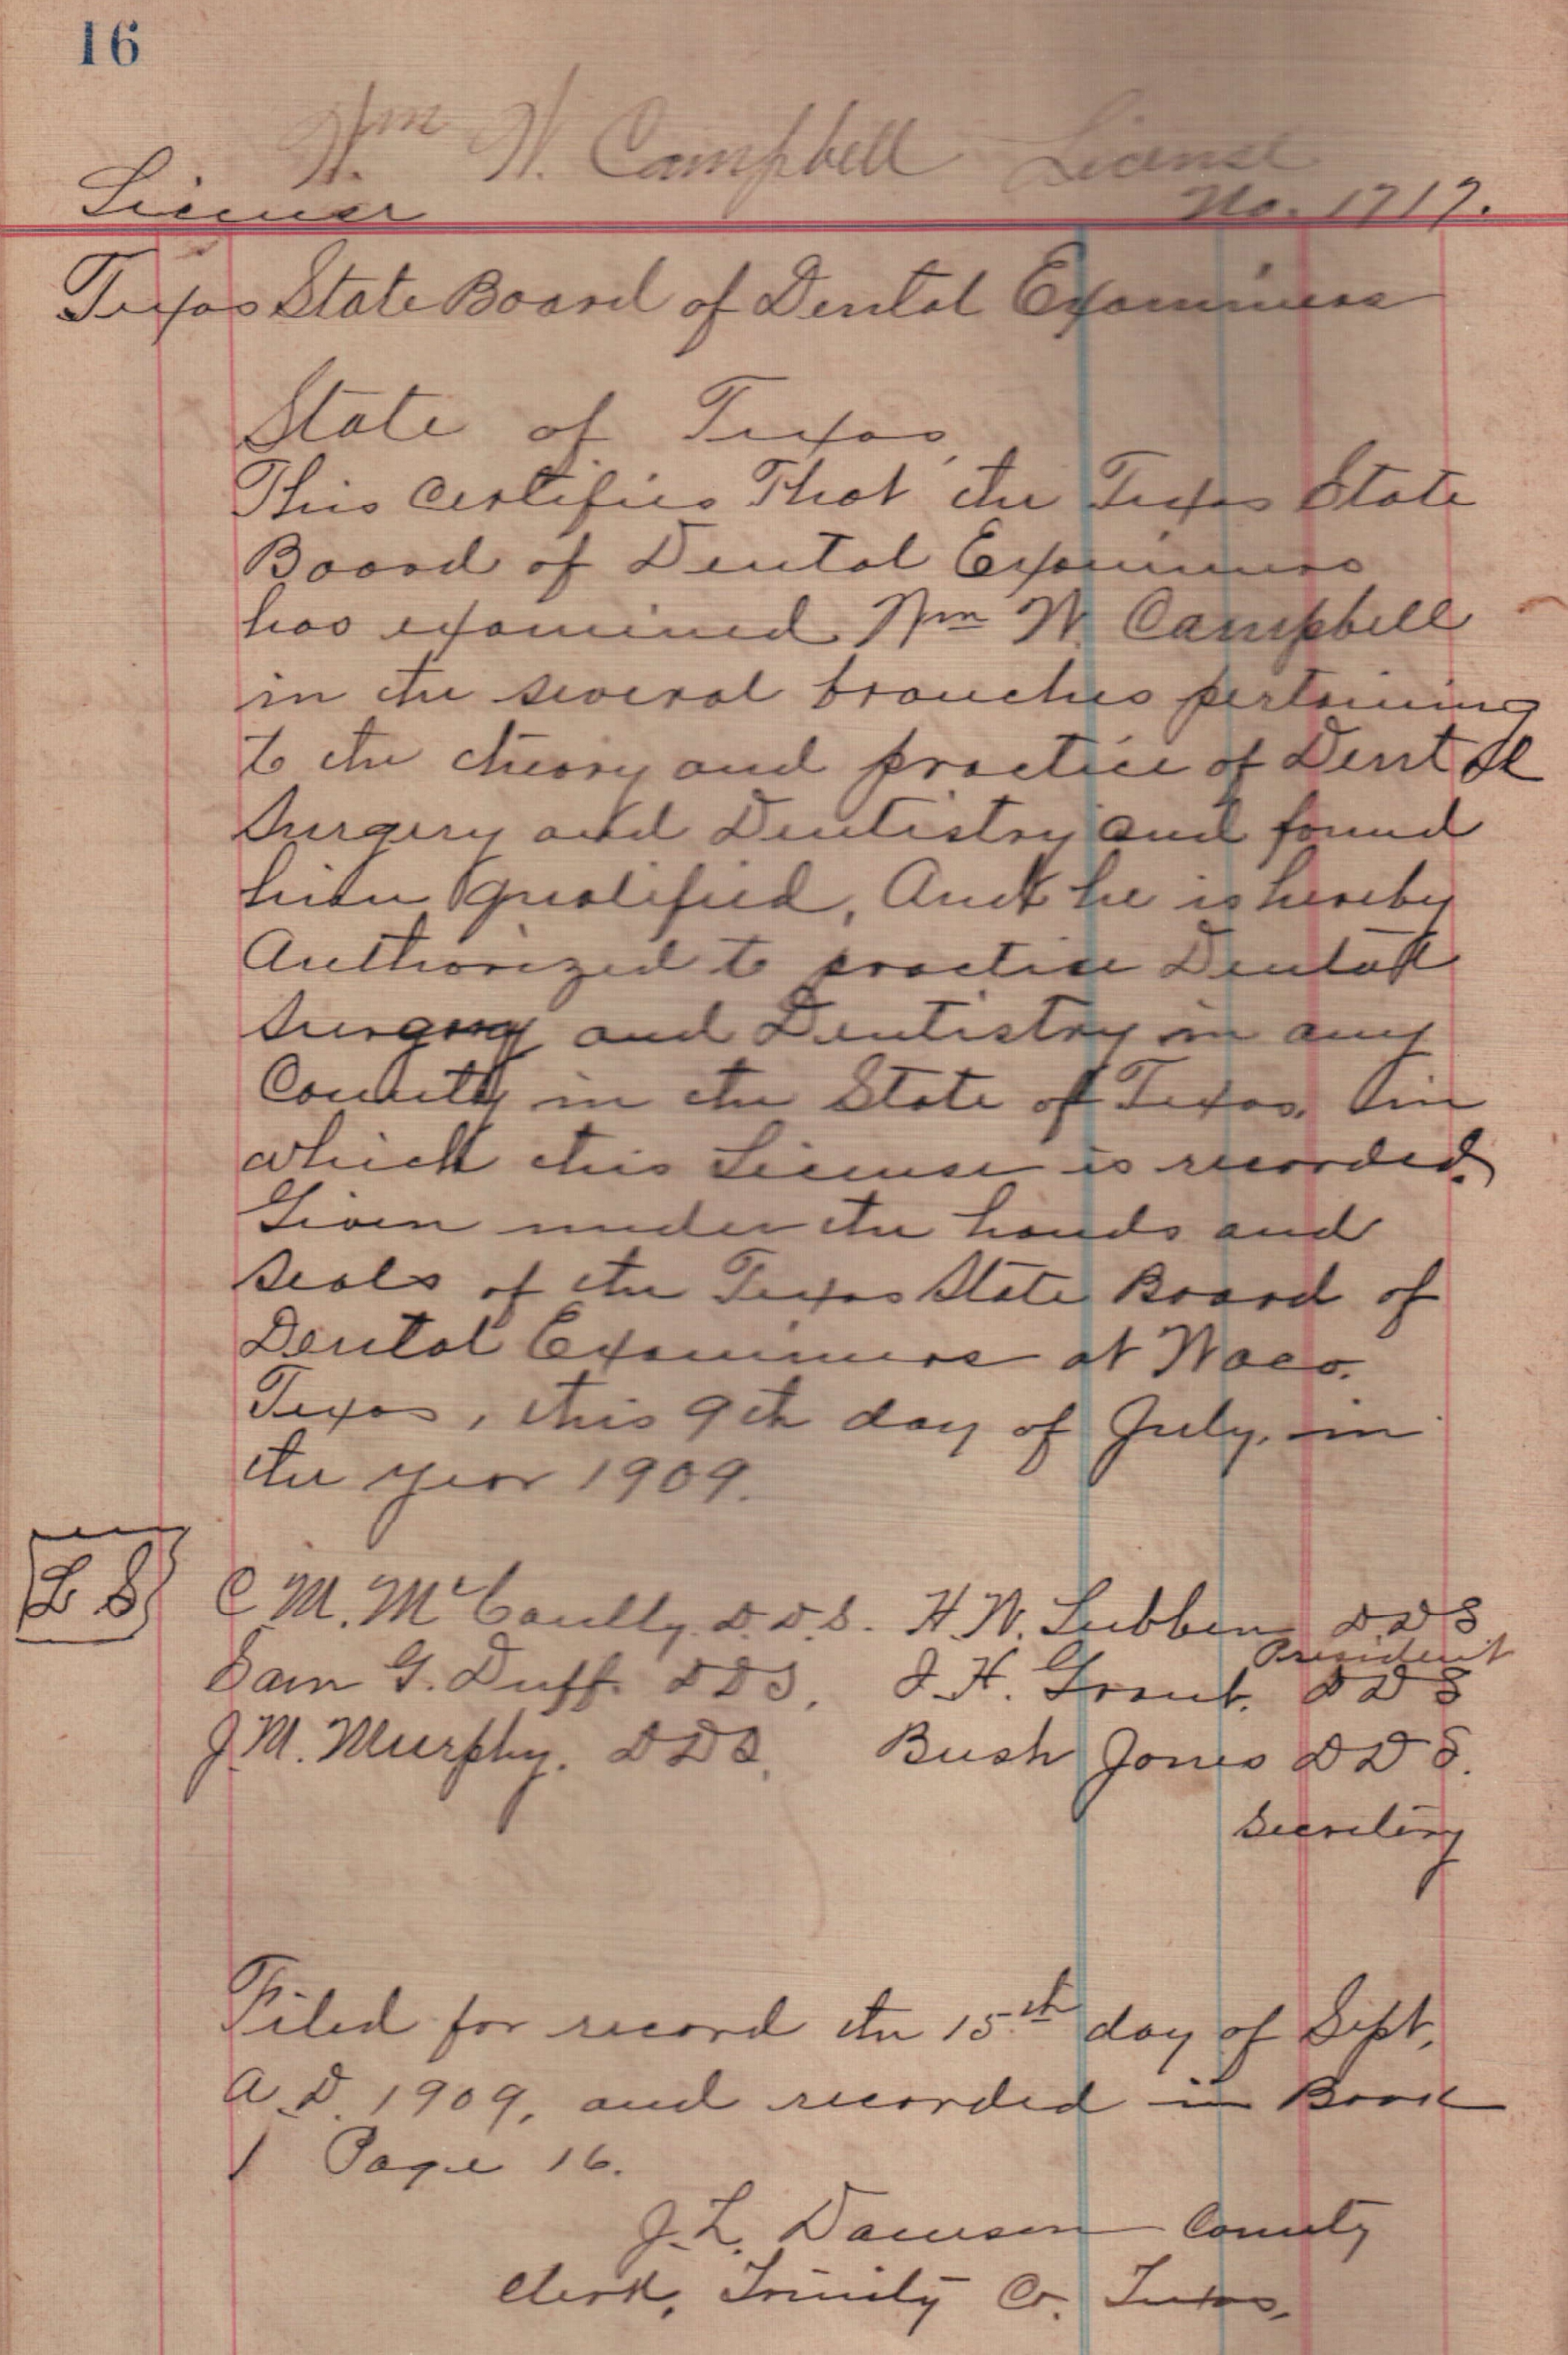 16
Wm W. Campbell License
License No. 1717.
Texas State Board of Dental Examiners
State of Texas,
This certifies That the Texas State
Board of Dental Examiners
has examined Wm W. Campbell
in the several branches pertaining
to the theory and practice of Dental
Surgery and Dentistry and found
him qualified, And he is hereby
Authorized to practice Dental
Surgery and Dentistry in any
County in the State of Texas, in
which this License is recorded.
Given under the hands and
seals of the Texas State Board of
Dental Examiners at Waco.
Texas, this 9th day of July, in
the year 1909.
L S
C M. McCaully D.D.S. H.W. Lubben DDS
President
Sam G. Duff. DDS. J.H. Grant. DDS
J.M. Murphy. DDS. Bush Jones DDS.
Secretary
Filed for record the 15th day of Sept,
A.D. 1909, and recorded in Book
1 Page 16.
J.L. County
Clerk, Trinity Co. Texas,